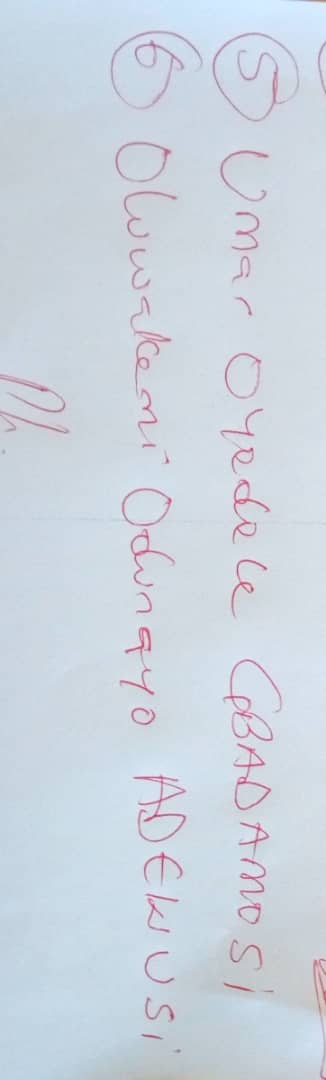 5 Umar Oyedele GBADAMOSI
6 Oluwakemi Odunayo ADEKUSI